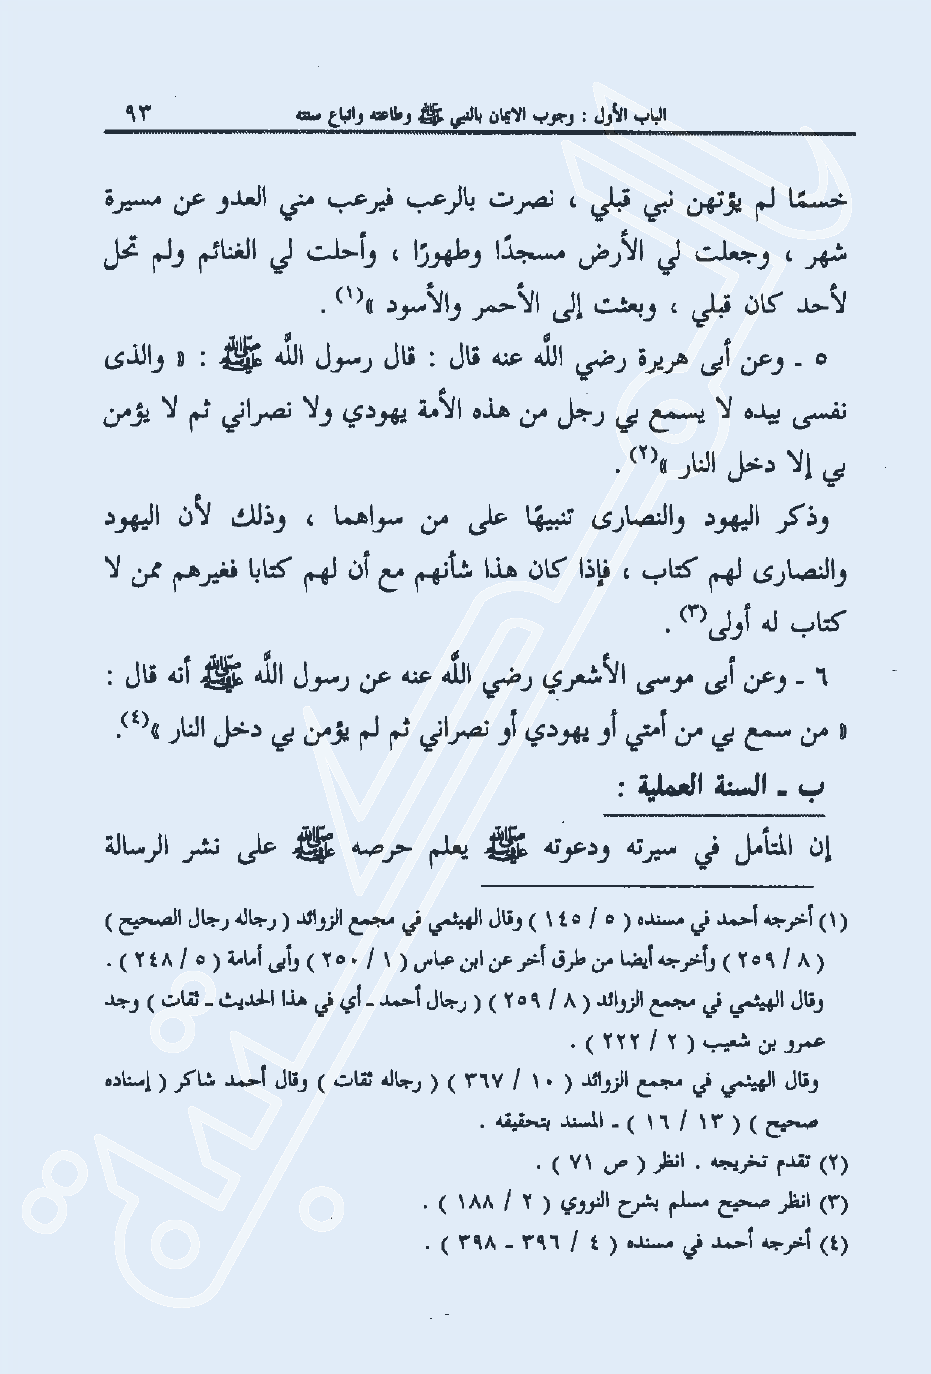 الباب الأول : وجوب الايمان بالنبي ﷺ وطاعته واتباع سنته ٩٣
خسمًا لم يؤتهن نبي قبلي ، نصرت بالرعب فيرعب مني العدو عن مسيرة
شهر ، وجعلت لي الأرض مسجدًا وطهورًا ، وأحلت لي الغنائم ولم تحل
لأحد كان قبلي ، وبعثت إلى الأحمر والأسود »(١) .
٥ ـ وعن أبى هريرة رضي اللَّه عنه قال : قال رسول اللَّه ﷺ : « والذى
نفسى بيده لا يسمع بي رجل من هذه الأمة يهودي ولا نصراني ثم لا يؤمن
بي إلا دخل النار »(٢) .
وذكر اليهود والنصارى تنبيهًا على من سواهما ، وذلك لأن اليهود
والنصارى لهم كتاب ، فإذا كان هذا شأنهم مع أن لهم كتابا فغيرهم ممن لا
كتاب له أولى(٣) .
٦ ـ وعن أبى موسى الأشعري رضي اللَّه عنه عن رسول اللَّه ﷺ أنه قال :
« من سمع بي من أمتي أو يهودي أو نصراني ثم لم يؤمن بي دخل النار »(٤).
ب ـ السنة العملية :
إن المتأمل في سيرته ودعوته ﷺ يعلم حرصه ﷺ على نشر الرسالة
(١) أخرجه أحمد في مسنده ( ٥ / ١٤٥ ) وقال الهيثمي في مجمع الزوائد ( رجاله رجال الصحيح )
( ٨ / ٢٥٩ ) وأخرجه أيضا من طرق أخر عن ابن عباس ( ١ / ٢٥٠ ) وأبى أمامة ( ٥ / ٢٤٨ ) .
وقال الهيثمي في مجمع الزوائد ( ٨ / ٢٥٩ ) ( رجال أحمد ـ أي في هذا الحديث ـ ثقات ) وجد
عمرو بن شعيب ( ٢ / ٢٢٢ ) .
وقال الهيثمي في مجمع الزوائد ( ١٠ / ٣٦٧ ) ( رجاله ثقات ) وقال أحمد شاكر ( إسناده
صحيح ) ( ١٣ / ١٦ ) ـ المسند بتحقيقه .
(٢) تقدم تخريجه . انظر ( ص ٧١ ) .
(٣) انظر صحيح مسلم بشرح النووي ( ٢ / ١٨٨ ) .
(٤) أخرجه أحمد في مسنده ( ٤ / ٣٩٦ ـ ٣٩٨ ) .